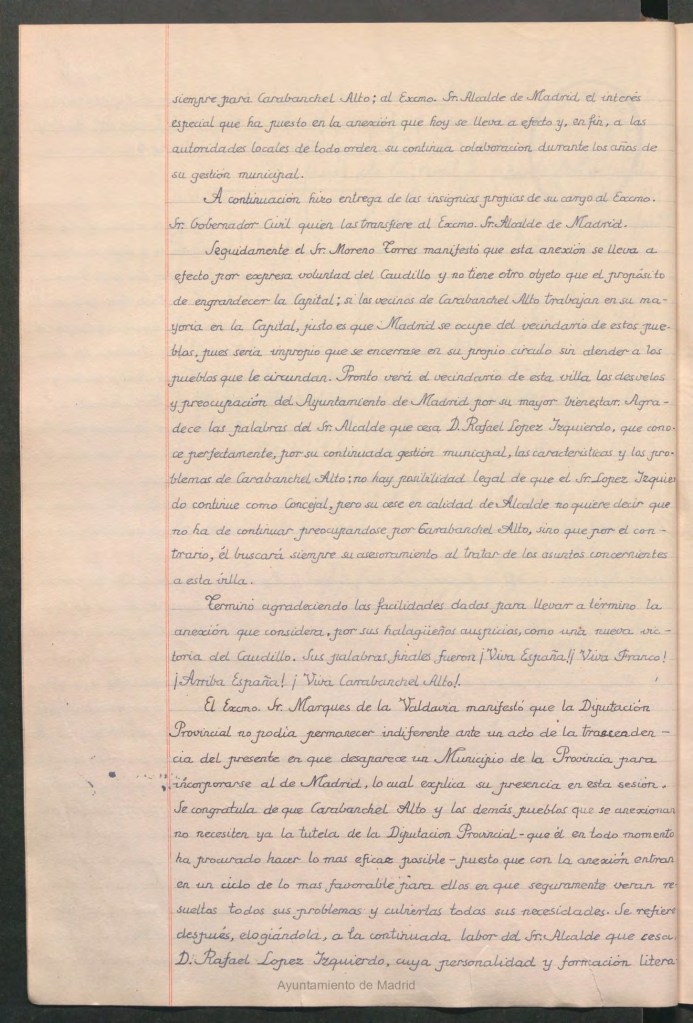 siempre para Carabanchel Alto; al Excmo. Sr. Alcalde de Madrid el interés
especial que ha puesto en la anexión que hoy se lleva a efecto y, en fin, a las
autoridades locales de todo orden su continua colaboracion durante los años de
su gestión municipal.
A continuación hizo entrega de las insignias propias de su cargo al Excmo.
Sr. Gobernador Civil quien las transfiere al Excmo. Sr. Alcalde de Madrid.
Seguidamente el Sr. Moreno Torres manifestó que esta anexión se lleva a
efecto por expresa voluntad del Caudillo y no tiene otro objeto que el propósito
de engrandecer la Capital; si los vecinos de Carabanchel Alto trabajan en su ma-
yoria en la Capital, justo es que Madrid se ocupe del vecindario de estos pue-
blos, pues seria impropio que se encerrase en su propio circulo sin atender a los
pueblos que le circundan. Pronto verá el vecindario de esta villa los desvelos
y preocupación del Ayuntamiento de Madrid por su mayor bienestar. Agra-
dece las palabras del Sr. Alcalde que cesa D. Rafael Lopez Izquierdo, que cono-
ce perfectamente, por su continuada gestión municipal, las caracteristicas y los pro-
blemas de Carabanchel Alto; no hay posibilidad legal de que el Sr. Lopez Izquier
do continue como Concejal, pero su cese en calidad de Alcalde no quiere decir que
no ha de continuar preocupandose por Carabanchel Alto, sino que por el con-
trario, él buscará siempre su asesoramiento al tratar de los asuntos concernientes
a esta villa.
Terminó agradeciendo las facilidades dadas para llevar a término la
anexión que considera, por sus halagüeños auspicios, como una nueva vic-
toria del Caudillo. Sus palabras finales fueron ¡Viva España! ¡Viva Franco!
¡Arriba España! ¡Viva Carabanchel Alto!.
El Excmo. Sr. Marques de la Valdavia manifestó que la Diputación
Provincial no podia permanecer indiferente ante un acto de la trascenden-
cia del presente en que desaparece un Municipio de la Provincia para
incorporarse al de Madrid, lo cual explica su presencia en esta sesión.
Se congratula de que Carabanchel Alto y los demás pueblos que se anexionan
no necesiten ya la tutela de la Diputacion Provincial - que él en todo momento
ha procurado hacer lo mas eficaz posible - puesto que con la anexión entran
en un ciclo de lo mas favorable para ellos en que seguramente veran re
sueltos todos sus problemas y cubiertas todas sus necesidades. Se refiere
después, elogiándola, a la continuada labor del Sr. Alcalde que cesa
D. Rafael Lopez Izquierdo, cuya personalidad y formación litera
Ayuntamiento de Madrid